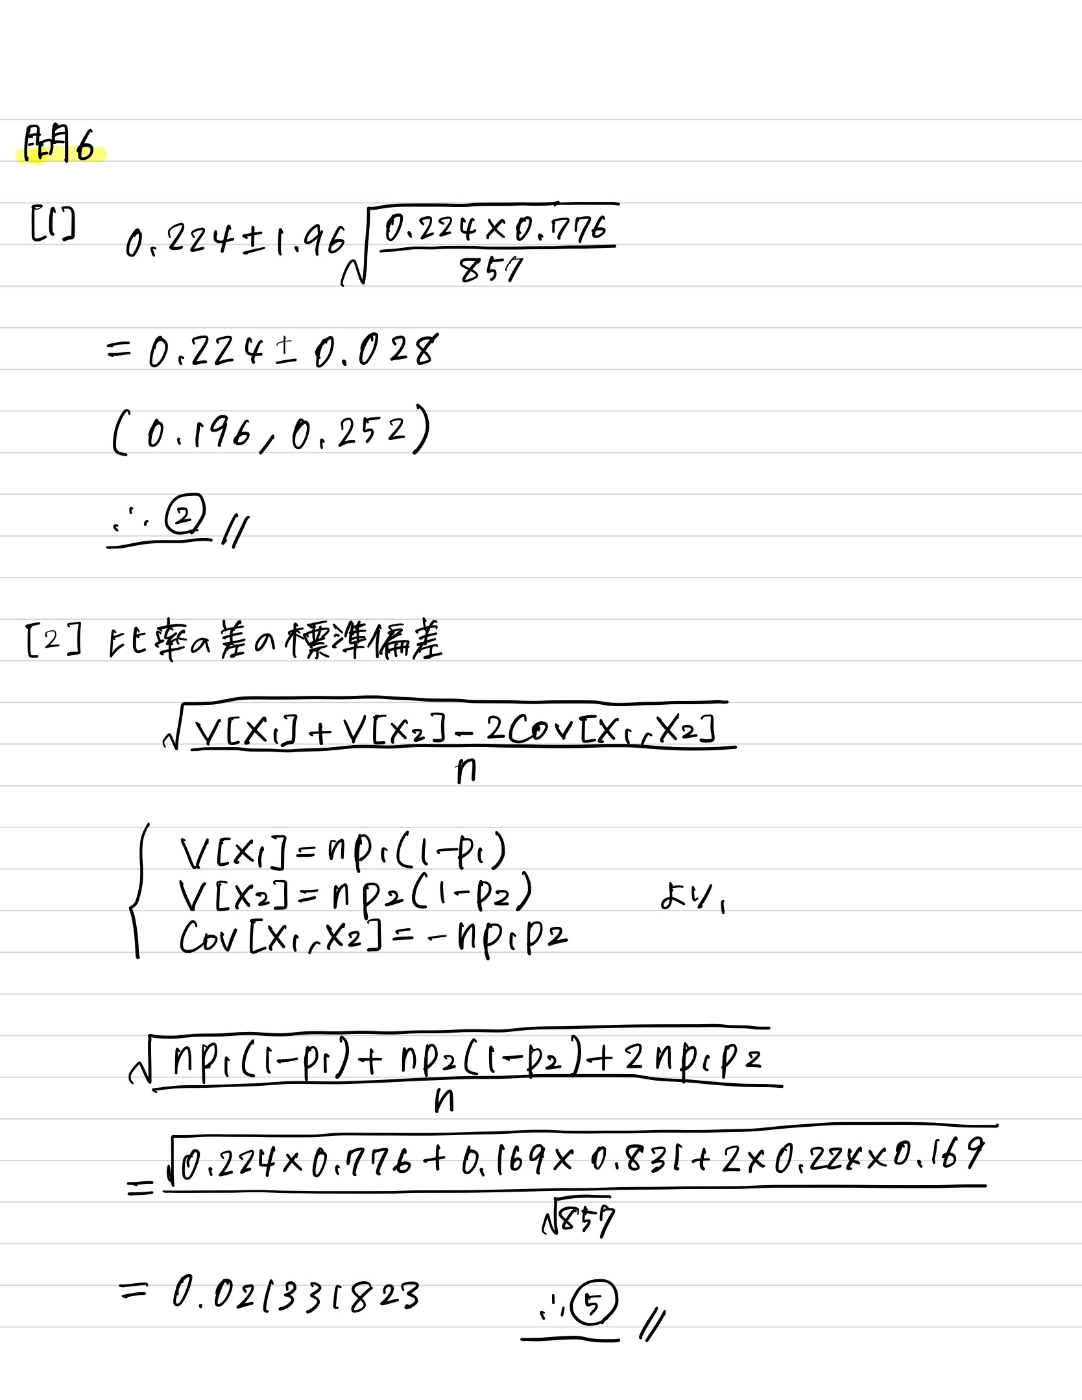 問6
[1] 0.224±1.96√(0.224×0.776/857)
= 0.224±0.028
(0.196, 0.252)
∴②//
[2] 比率の差の標準偏差
√(V[X1]+V[X2]-2Cov[X1,X2])/n
V[X1]=np1(1-p1)
V[X2]=np2(1-p2) より,
Cov[X1,X2]=-np1p2
√(np1(1-p1)+np2(1-p2)+2np1p2)/n
=√(0.224×0.776+0.169×0.831+2×0.224×0.169)/√857
= 0.021331823 ∴⑤//